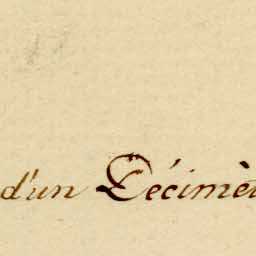 d'un Décimèt